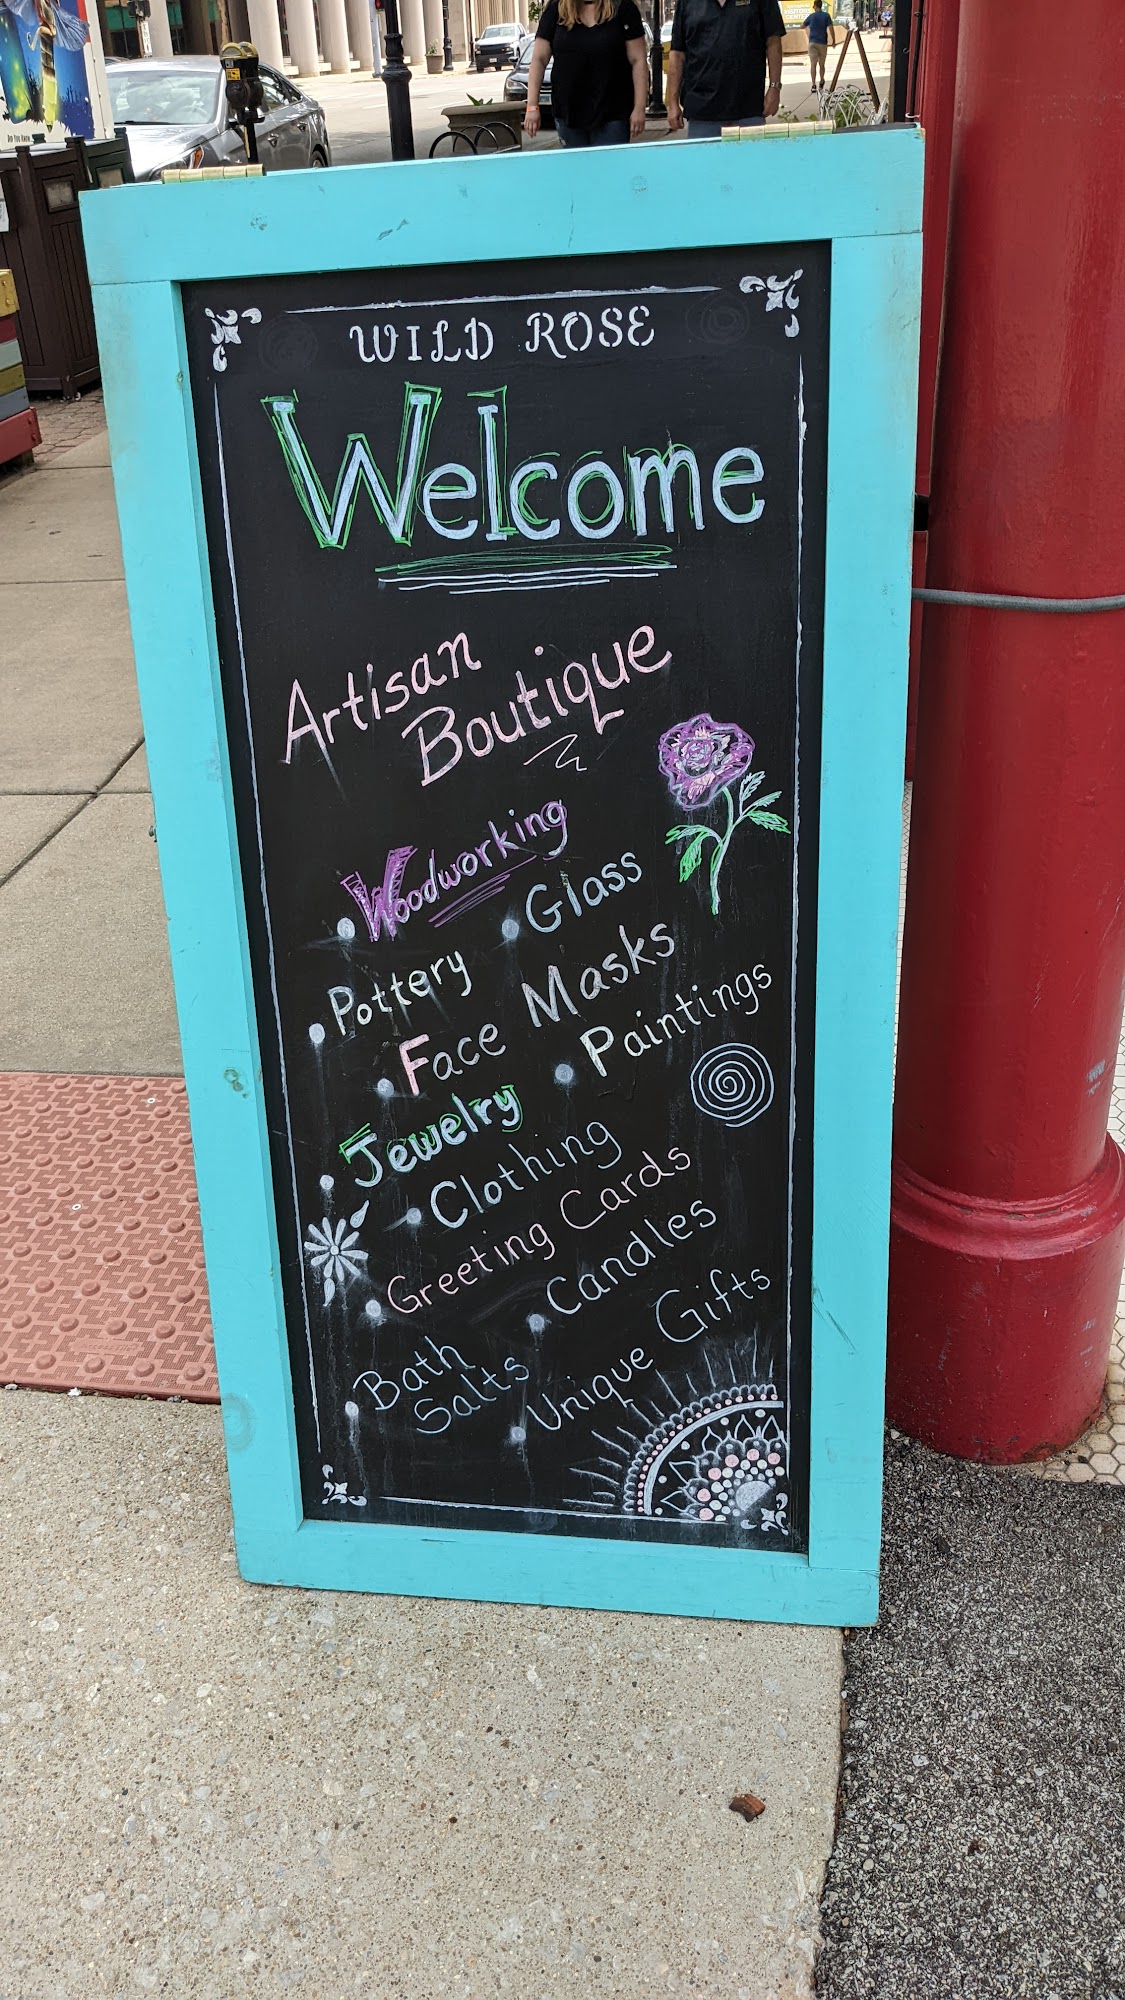 WILD ROSE
Welcome
Artisan
Boutique
Woodworking
Glass
Pottery
Face Masks
Jewelry
Paintings
Clothing
Greeting Cards
Candles
Bath
Salts
Unique Gifts